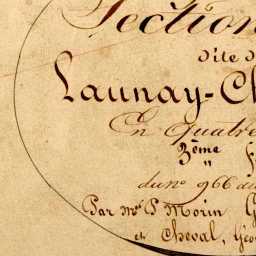 Section
dite d
Launay-Ch
En quatre
3ème f
du nº 966 au
Par Mrs P Morin G
et Cheval, Géo